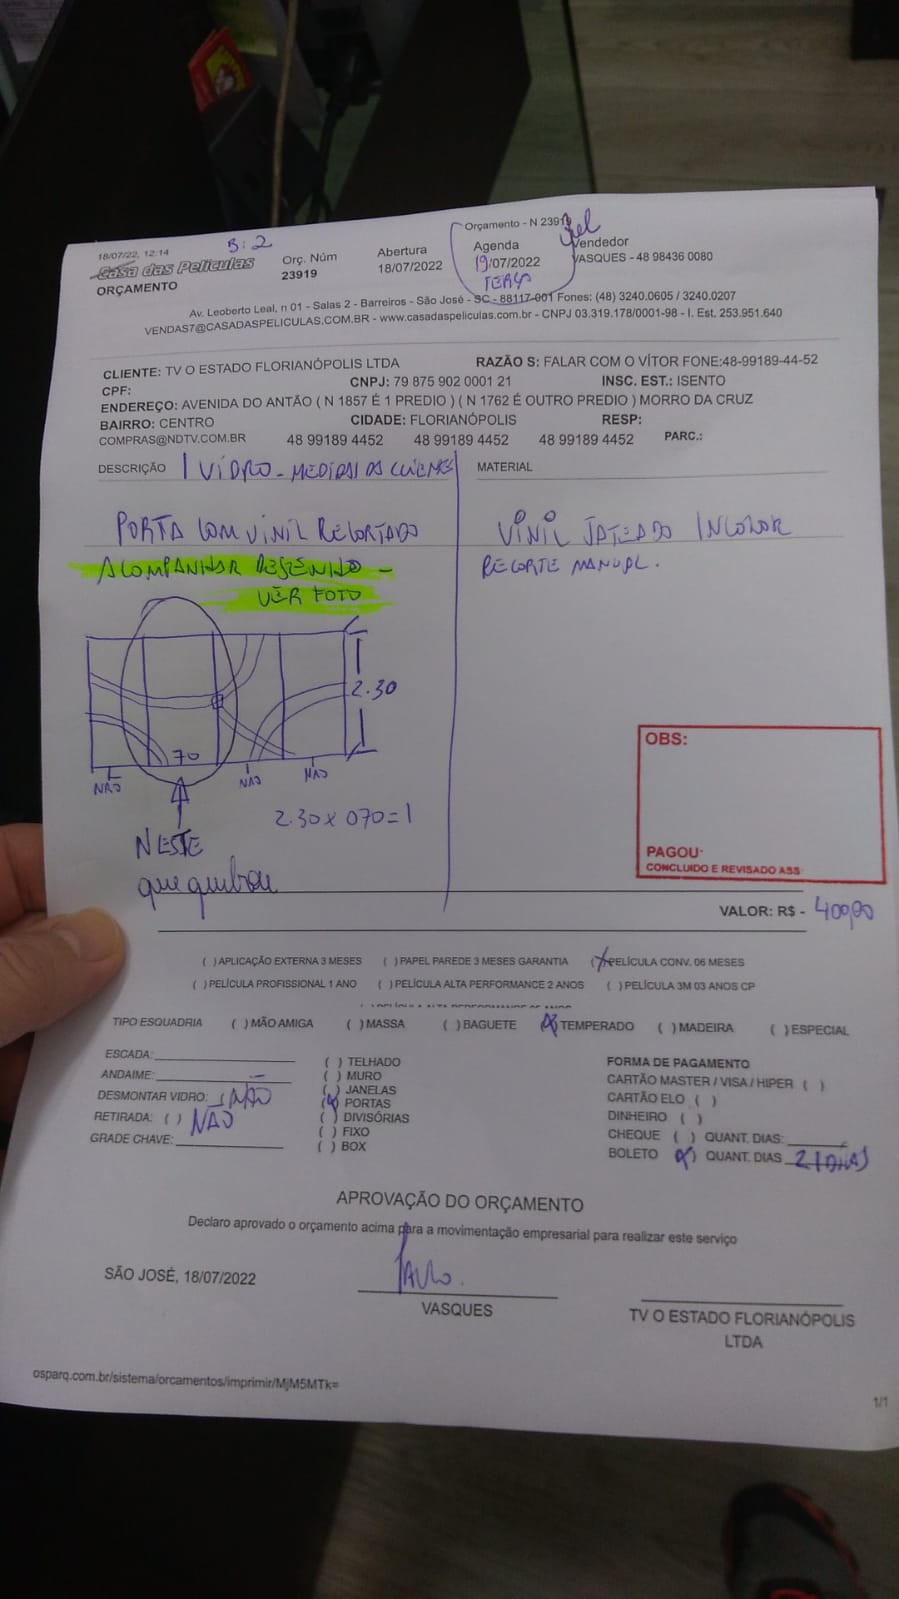 18/07/22, 12:14
B: 2
Orçamento - N 23919
Casa das Películas
ORÇAMENTO
Orç. Núm
23919
Abertura
18/07/2022
Agenda
19/07/2022
TERÇA
Vendedor
VASQUES - 48 98436 0080
Av. Leoberto Leal, n 01 - Salas 2 - Barreiros - São José - SC - 88117-001 Fones: (48) 3240.0605 / 3240.0207
VENDAS7@CASADASPELICULAS.COM.BR - www.casadaspeliculas.com.br - CNPJ 03.319.178/0001-98 - I. Est. 253.951.640
CLIENTE: TV O ESTADO FLORIANÓPOLIS LTDA RAZÃO S: FALAR COM O VÍTOR FONE:48-99189-44-52
CPF: CNPJ: 79 875 902 0001 21 INSC. EST.: ISENTO
ENDEREÇO: AVENIDA DO ANTÃO ( N 1857 É 1 PREDIO ) ( N 1762 É OUTRO PREDIO ) MORRO DA CRUZ
BAIRRO: CENTRO CIDADE: FLORIANÓPOLIS RESP:
COMPRAS@NDTV.COM.BR 48 99189 4452 48 99189 4452 48 99189 4452 PARC.:
DESCRIÇÃO 1 VIDRO - MEDIDAS DO CLIENTE MATERIAL
PORTA COM VINIL RECORTADO
VINIL JATEADO INCOLOR
ACOMPANHAR DESENHO -
RECORTE MANUAL.
VER FOTO
2.30
70
NÃO
NÃO
NÃO
2.30 x 070 = 1
NESTE
que quebrou
OBS:
PAGOU:
CONCLUIDO E REVISADO ASS
VALOR: R$ - 400,00
( ) APLICAÇÃO EXTERNA 3 MESES ( ) PAPEL PAREDE 3 MESES GARANTIA (X) PELÍCULA CONV. 06 MESES
( ) PELÍCULA PROFISSIONAL 1 ANO ( ) PELÍCULA ALTA PERFORMANCE 2 ANOS ( ) PELÍCULA 3M 03 ANOS CP
TIPO ESQUADRIA ( ) MÃO AMIGA ( ) MASSA ( ) BAGUETE (X) TEMPERADO ( ) MADEIRA ( ) ESPECIAL
ESCADA:
ANDAIME: -
DESMONTAR VIDRO: ( NÃO
RETIRADA: ( ) NÃO
GRADE CHAVE:
( ) TELHADO
( ) MURO
( ) JANELAS
(X) PORTAS
( ) DIVISÓRIAS
( ) FIXO
( ) BOX
FORMA DE PAGAMENTO
CARTÃO MASTER / VISA / HIPER ( )
CARTÃO ELO ( )
DINHEIRO ( )
CHEQUE ( ) QUANT. DIAS:
BOLETO (X) QUANT. DIAS 21 DIAS
APROVAÇÃO DO ORÇAMENTO
Declaro aprovado o orçamento acima para a movimentação empresarial para realizar este serviço
SÃO JOSÉ, 18/07/2022
Paulo.
VASQUES
TV O ESTADO FLORIANÓPOLIS
LTDA
osparq.com.br/sistema/orcamentos/imprimir/MjM5MTk=
1/1